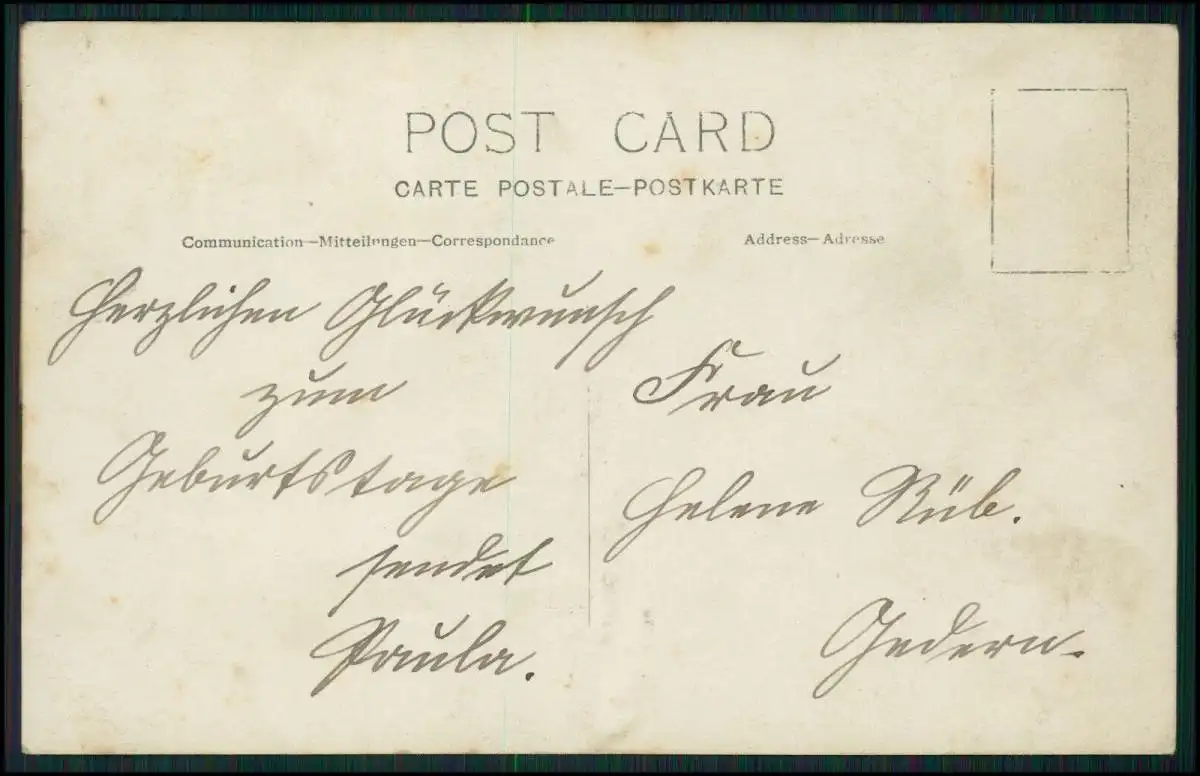 POST CARD
CARTE POSTALE—POSTKARTE
Communication—Mitteilungen—Correspondance
Address—Adresse
Herzlichen Glückwunsch
zum
Geburtstage
sendet
Paula.
Frau
Helene Rüb.
Gedern.